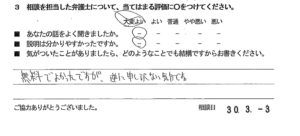 3 相談を担当した弁護士について、当てはまる評価に○をつけてください。
大変よい よい 普通 やや悪い 悪い
■ あなたの話をよく聞きましたか。
■ 説明は分かりやすかったですか。
■ 気がついたことがありましたら、どのようなことでも結構ですからお書きください。
無料でよかったですが、逆に申し訳ない気持です
ご協力ありがとうございました。 相談日 30.3.-3